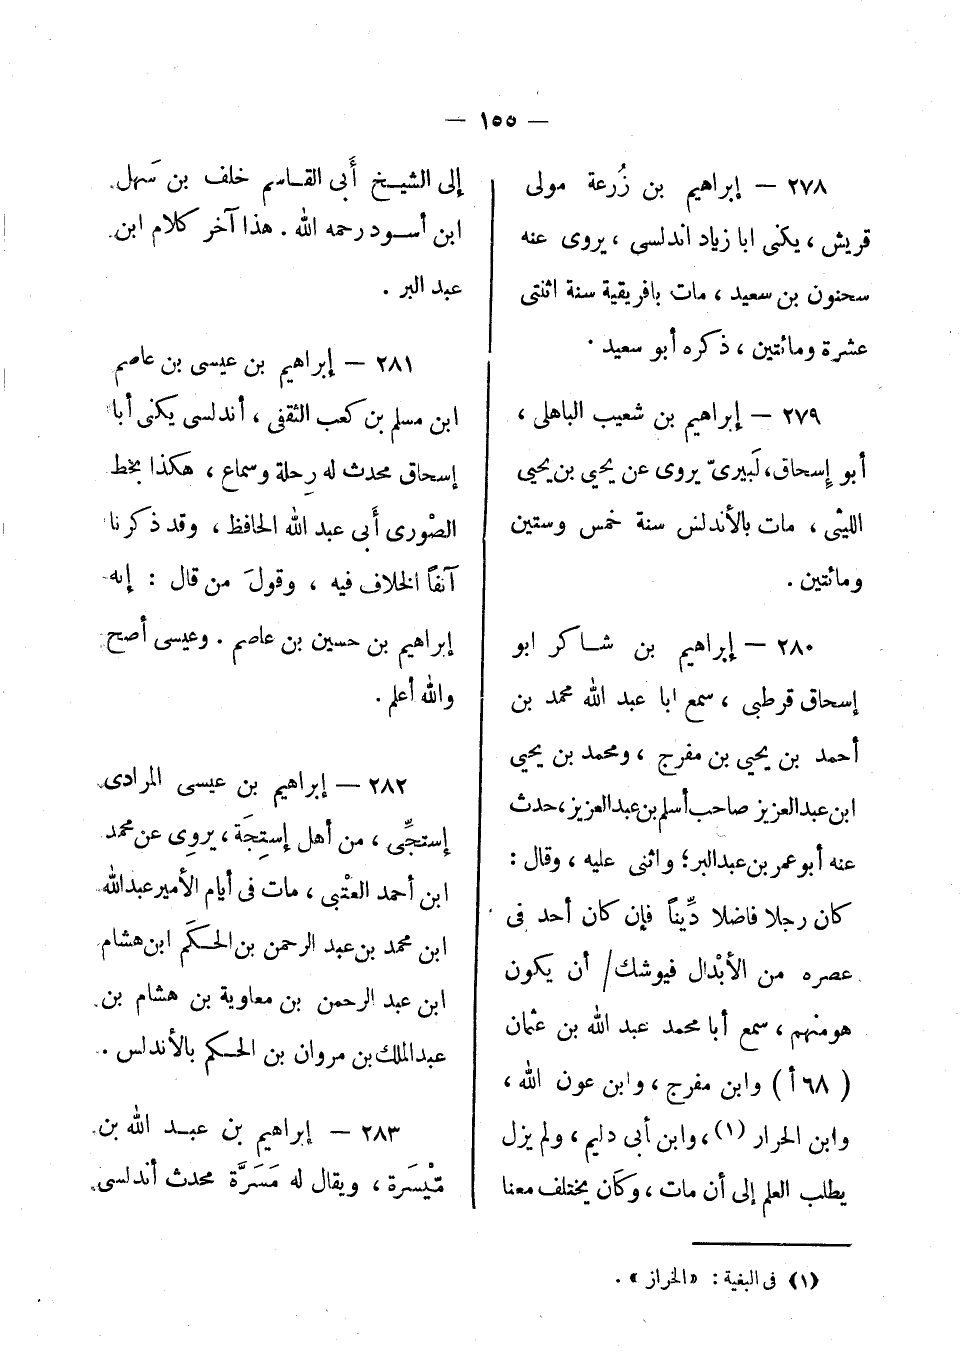 — ١٥٥ —
٢٧٨ — إبراهيم بن زُرعة مولى
قريش ، يكنى ابا زياد اندلسى ، يروى عنه
سحنون بن سعيد ، مات بافريقية سنة اثنتى
عشرة ومائتين ، ذكره أبو سعيد .
٢٧٩ — إبراهيم بن شعيب الباهلى ،
أبو إسحاق، لَبيرىّ يروى عن يحيى بن يحيى
الليثى ، مات بالأندلس سنة خمس وستين
ومائتين .
٢٨٠ — إبراهيم بن شاكر ابو
إسحاق قرطبى ، سمع ابا عبد الله محمد بن
أحمد بن يحيى بن مفرج ، ومحمد بن يحيى
ابن عبد العزيز صاحب أسلم بن عبد العزيز ، حدث
عنه أبو عمر بن عبد البر ؛ واثنى عليه ، وقال :
كان رجلا فاضلا ديِّناً فإن كان أحد فى
عصره من الأبْدال فيوشك / أن يكون
هو منهم ، سمع أبا محمد عبد الله بن عثمان
( ٦٨ أ ) وابن مفرج ، وابن عون الله ،
وابن الحرار (١) ، وابن أبى دليم ، ولم يزل
يطلب العلم إلى أن مات ، وكان يختلف معنا
إلى الشيخ أَبى القاسم خلف بن سَهل
ابن أسود رحمه الله . هذا آخر كلام ابن
عبد البر .
٢٨١ — إبراهيم بن عيسى بن عاصم
ابن مسلم بن كعب الثقفى ، أندلسى يكنى أبا
إسحاق محدث له رِحلة وسماع ، هكذا بخط
الصُورى أَبى عبد الله الحافظ ، وقد ذكرنا
آنفاً الخلاف فيه ، وقولَ من قال : إنه
إبراهيم بن حسين بن عاصم . وعيسى أصح
والله أعلم .
٢٨٢ — إبراهيم بن عيسى المرادى
إستجِّى ، من أهل إستِجَة ، يروِى عن محمد
ابن أحمد العتْبى ، مات فى أيام الأمير عبد الله
ابن محمد بن عبد الرحمن بن الحكَم ابن هشام
ابن عبد الرحمن بن معاوية بن هشام بن
عبد الملك بن مروان بن الحكم بالأندلس .
٢٨٣ — إبراهيم بن عبد الله بن
مَيْسَرة ، ويقال له مَسَرَّة محدث أندلسى
(١) فى البغية : «الخراز» .